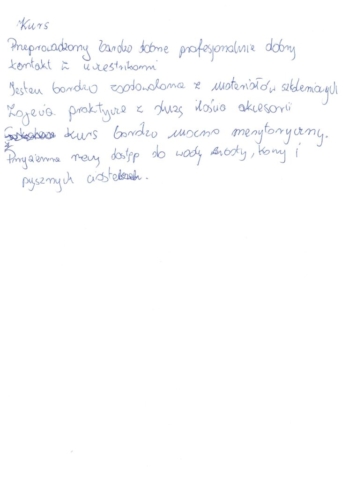 Kurs
Przeprowadzony bardzo dobrze profesjonalnie dobry
kontakt z uczestnikami
Jestem bardzo zadowolona z materiałów szkleniowych
Zajęcia praktyczne z dużą ilością akcesorii
kurs bardzo mocno merytoryczny.
Przyjemne dostęp do wody, kawy i
pysznych ciasteczek.